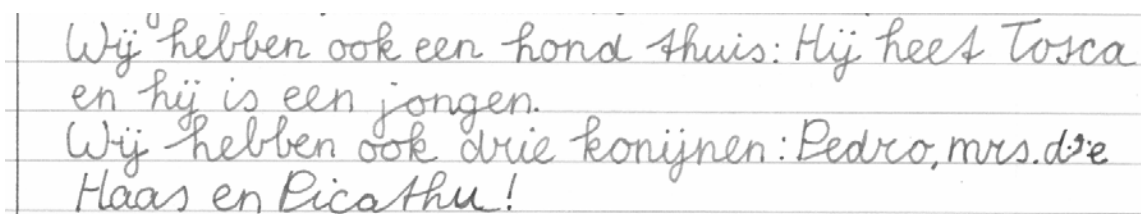 Wij hebben ook een hond thuis: Hij heet Tosca
en hij is een jongen.
Wij hebben ook drie konijnen: Pedro, mrs. die
Haas en Picathu!